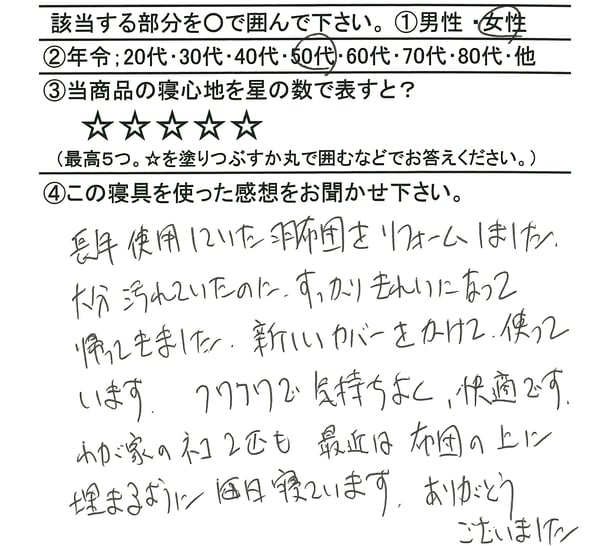 該当する部分を○で囲んで下さい。①男性・女性
②年令;20代・30代・40代・50代・60代・70代・80代・他
③当商品の寝心地を星の数で表すと？
☆☆☆☆☆
(最高5つ。☆を塗りつぶすか丸で囲むなどでお答えください。)
④この寝具を使った感想をお聞かせ下さい。
長年使用していた羽布団をリフォームしました。
大分汚れていたのに、すっかりきれいになって
帰ってきました。新しいカバーをかけて、使って
います。フワフワで気持ちよく、快適です。
わが家のネコ2匹も最近は布団の上に
埋まるように毎日寝ています。ありがとう
ございました